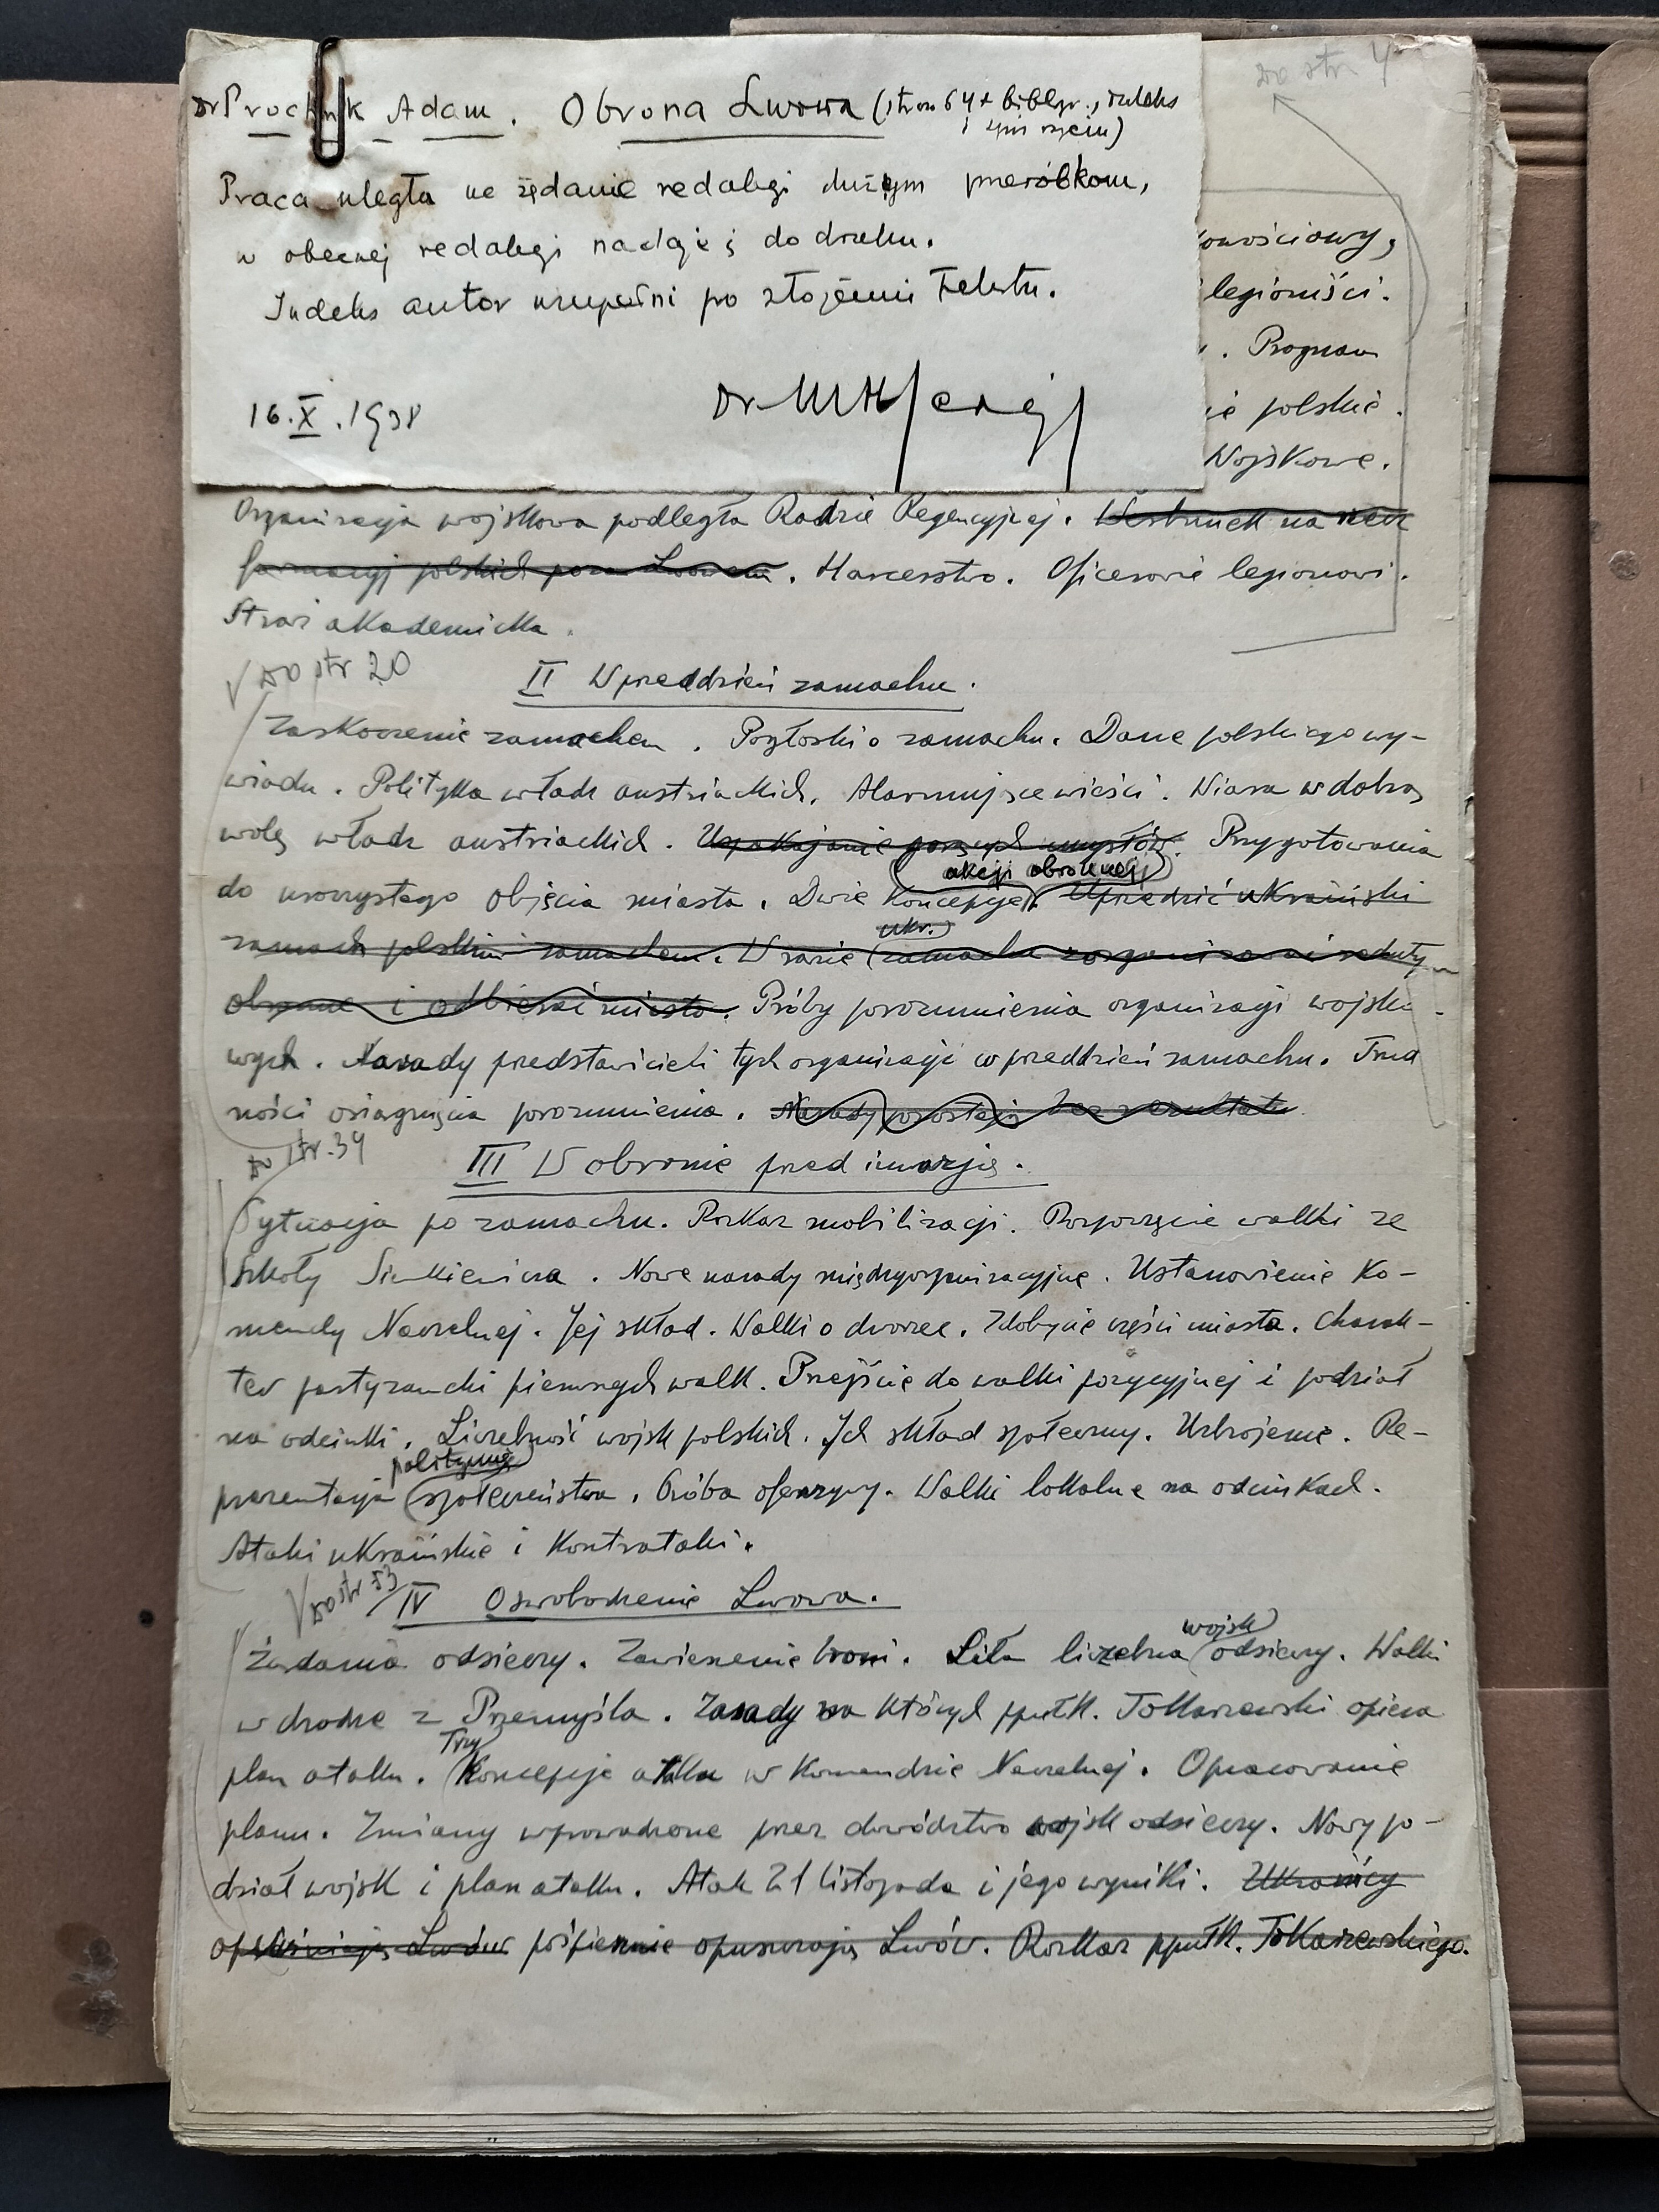 Dr Próchnik Adam. Obrona Lwowa (stron 64 + bibliogr., indeks
i spis rzeczy)
Praca uległa na żądanie redakcji dużym przeróbkom,
w obecnej redakcji nadaje się do druku.
Indeks autor uzupełni po złożeniu tekstu.
16.X.1938
Do str. 4
onościowy,
legioniści.
. Program
ie polskie.
Wojskowe.
Organizacja wojskowa podległa Radzie Regencyjnej. Werbunek na rzecz
formacyj polskich poza Lwowem. Harcerstwo. Oficerowie legionowi.
Straż akademicka.
Do str 20
II W przeddzień zamachu.
Zaskoczenie zamachem. Pogłoski o zamachu. Dane polskiego wy-
wiadu. Polityka władz austriackich. Alarmujące wieści. Wiara w dobrą
wolę władz austriackich. Uspakajanie umysłów. Przygotowania
akcji obronnej
do uroczystego objęcia miasta. Dwie koncepcje. Uprzedzić ukraiński
ukr.
zamach polskim zamachem. W razie zamachu zorganizować reduty
obronne i odbierać miasto. Próby porozumienia organizacji wojsko-
wych. Narady przedstawicieli tych organizacji w przeddzień zamachu. Trud
ności osiągnięcia porozumienia. Narady pozostają bez rezultatu
Do str. 34
III W obronie przed inwazją.
Sytuacja po zamachu. Rozkaz mobilizacji. Rozpoczęcie walki ze
szkoły Sienkiewicza. Nowe narady międzyorganizacyjne. Ustanowienie Ko-
mendy Naczelnej. Jej skład. Walki o dworzec. Zdobycie części miasta. Charak-
ter partyzancki pierwszych walk. Przejście do walki pozycyjnej i podział
na odcinki. Liczebność wojsk polskich. Ich skład społeczny. Uzbrojenie. Re-
polityczna
prezentacja społeczeństwa. Próba ofenzywy. Walki lokalne na odcinkach.
Ataki ukraińskie i kontrataki.
Do str 53
IV Oswobodzenie Lwowa.
wojsk
Żądania odsieczy. Zawieszenie broni. Siła liczebna odsieczy. Walki
w drodze z Przemyśla. Zasady na których ppułk. Tokarzewski opiera
Trzy
plan ataku. Koncepcje ataku w Komendzie Naczelnej. Opracowanie
planu. Zmiany wprowadzone przez dowództwo wojsk odsieczy. Nowy po-
dział wojsk i plan ataku. Atak 21 listopada i jego wyniki. Ukraińcy
opuszczają Lwów pośpiesznie opuszczają Lwów. Rozkaz ppułk. Tokarzewskiego.